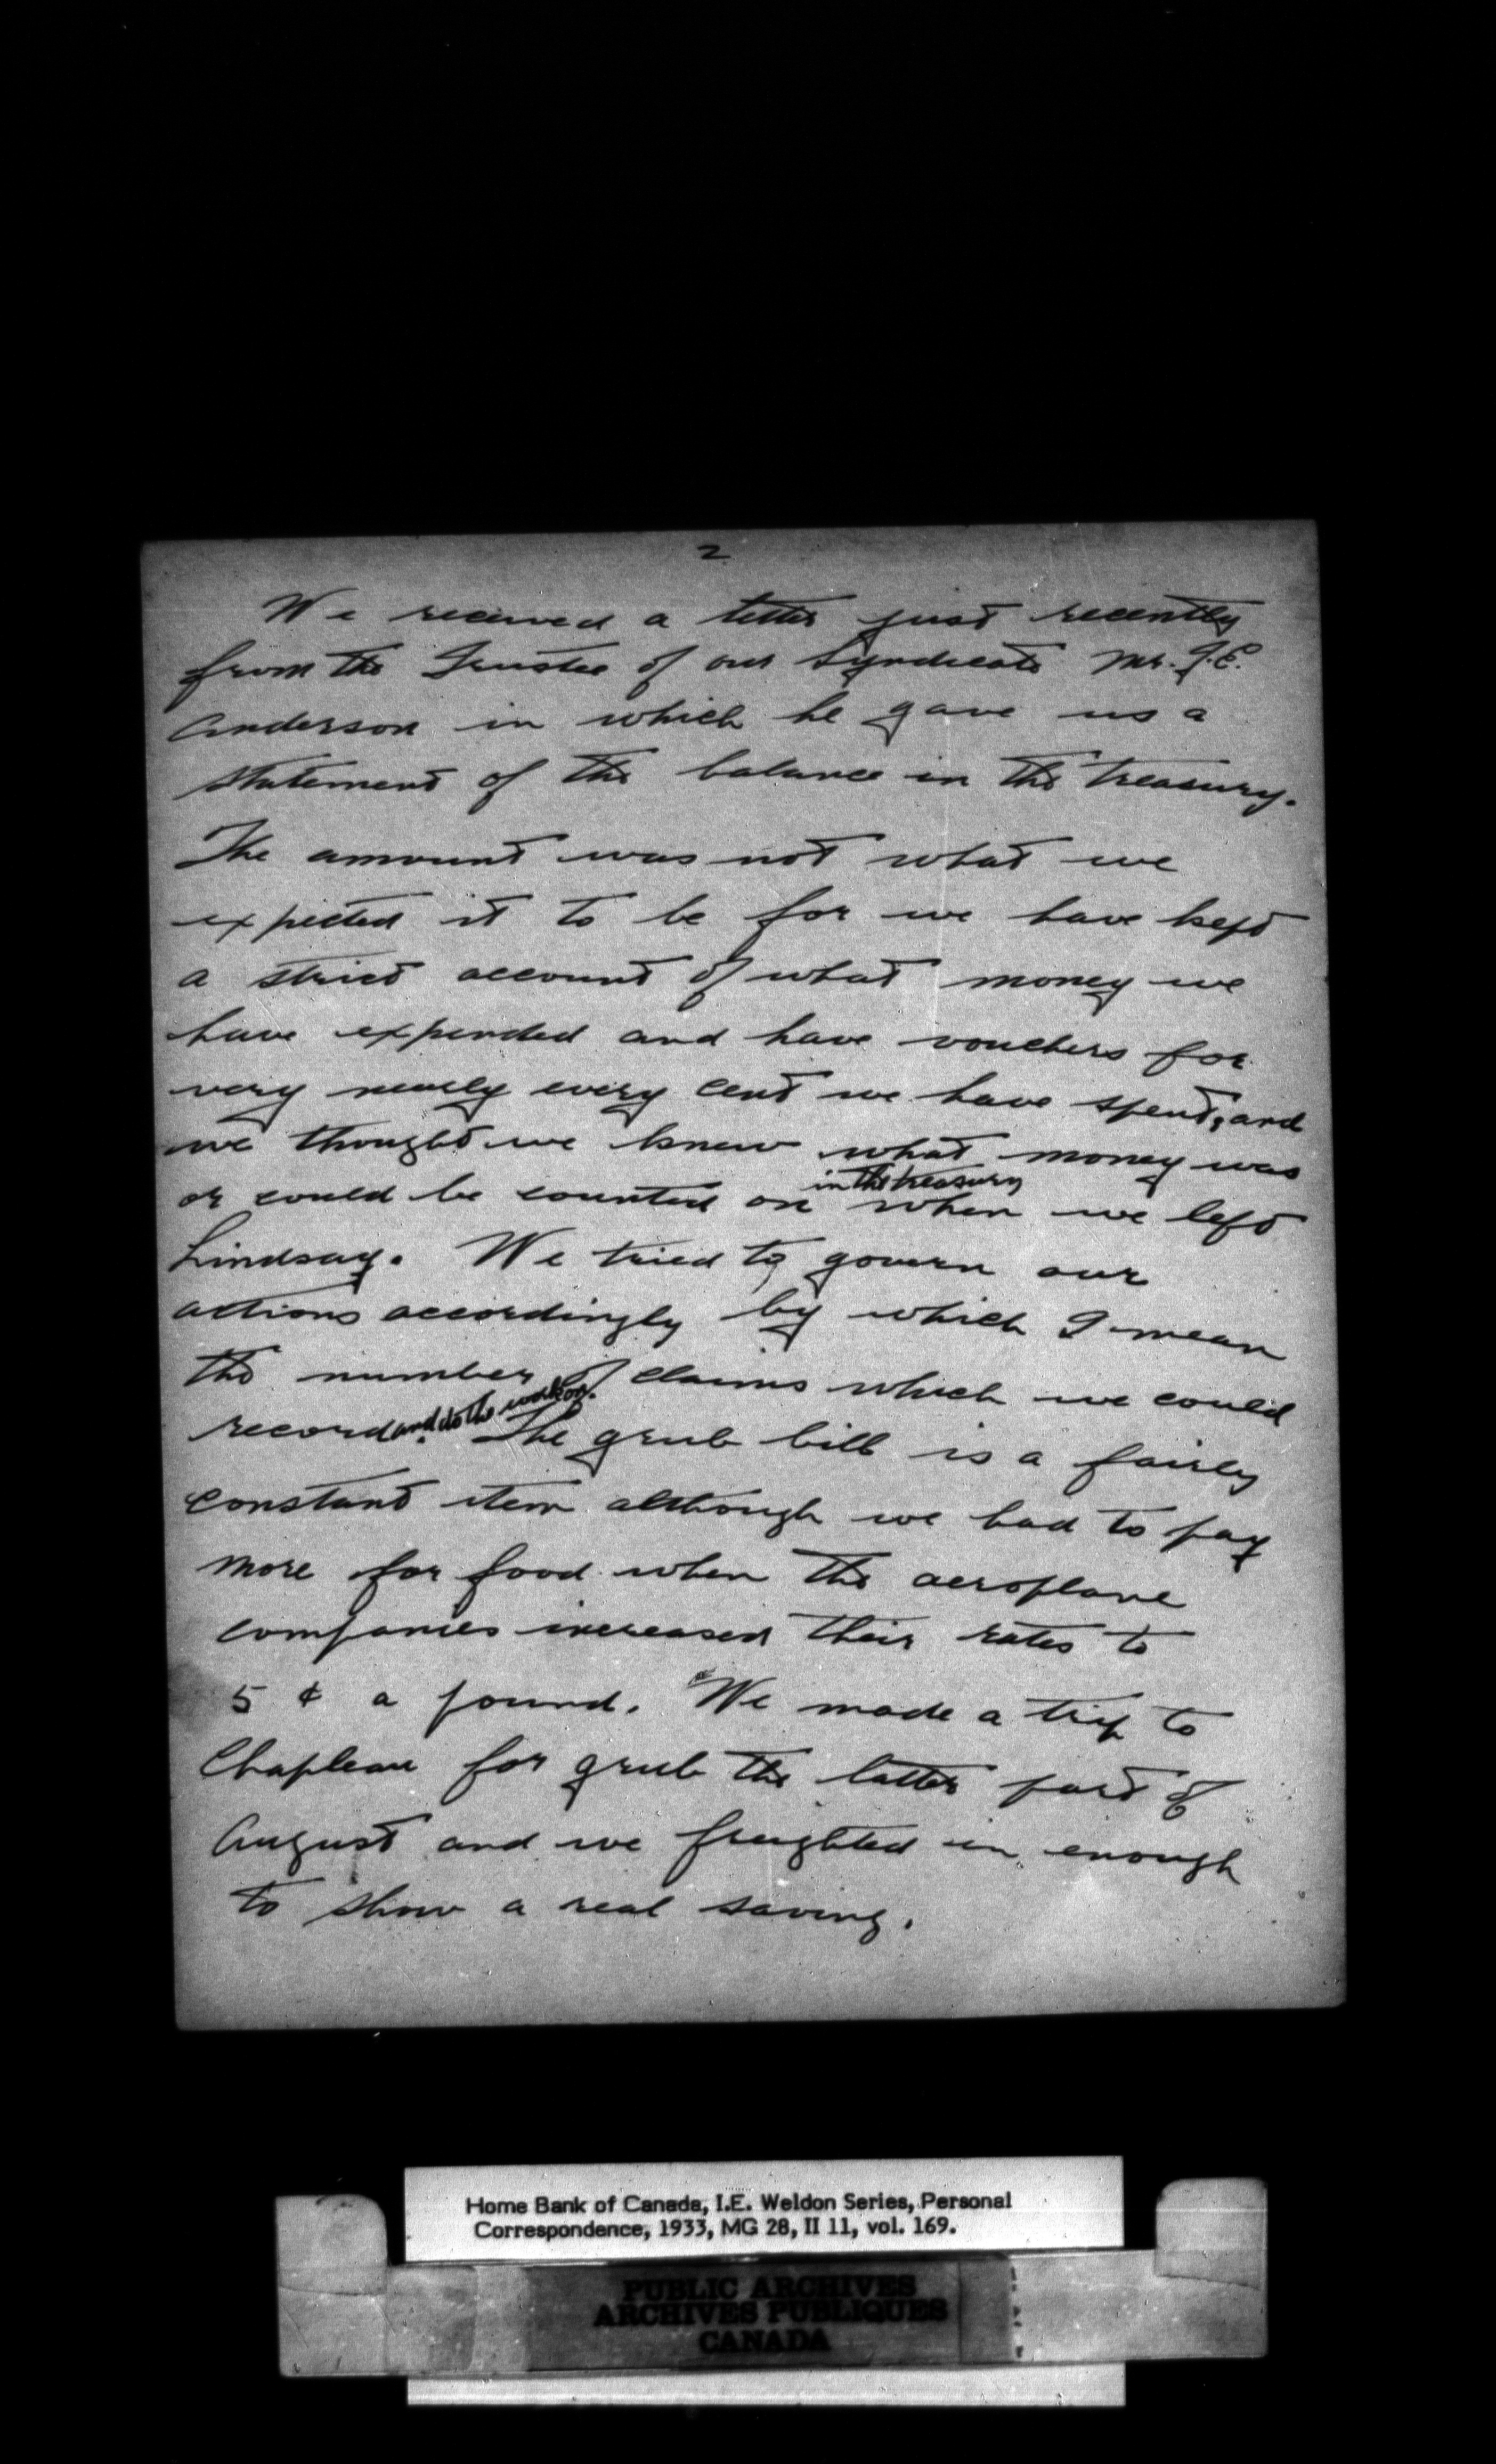 2
We received a letter just recently
from the Trustee of our Syndicate Mr. J.E.
Anderson in which he gave us a
statement of the balance in the treasury.
The amount was not what we
expected it to be for we have kept
a strict account of what money we
have expended and have vouchers for
very nearly every cent we have spent, and
we thought we knew what money was
in the treasury
or could be counted on when we left
Lindsay. We tried to govern our
actions accordingly by which I mean
the number of claims which we could
and do the work on.
record. The grub bill is a fairly
constant item although we had to pay
more for food when the aeroplane
companies increased their rates to
5 ¢ a pound. We made a trip to
Chapleau for grub the latter part of
August and we freighted in enough
to show a real saving.
Home Bank of Canada, I.E. Weldon Series, Personal
Correspondence, 1933, MG 28, II 11, vol. 169.
PUBLIC ARCHIVES
ARCHIVES PUBLIQUES
CANADA